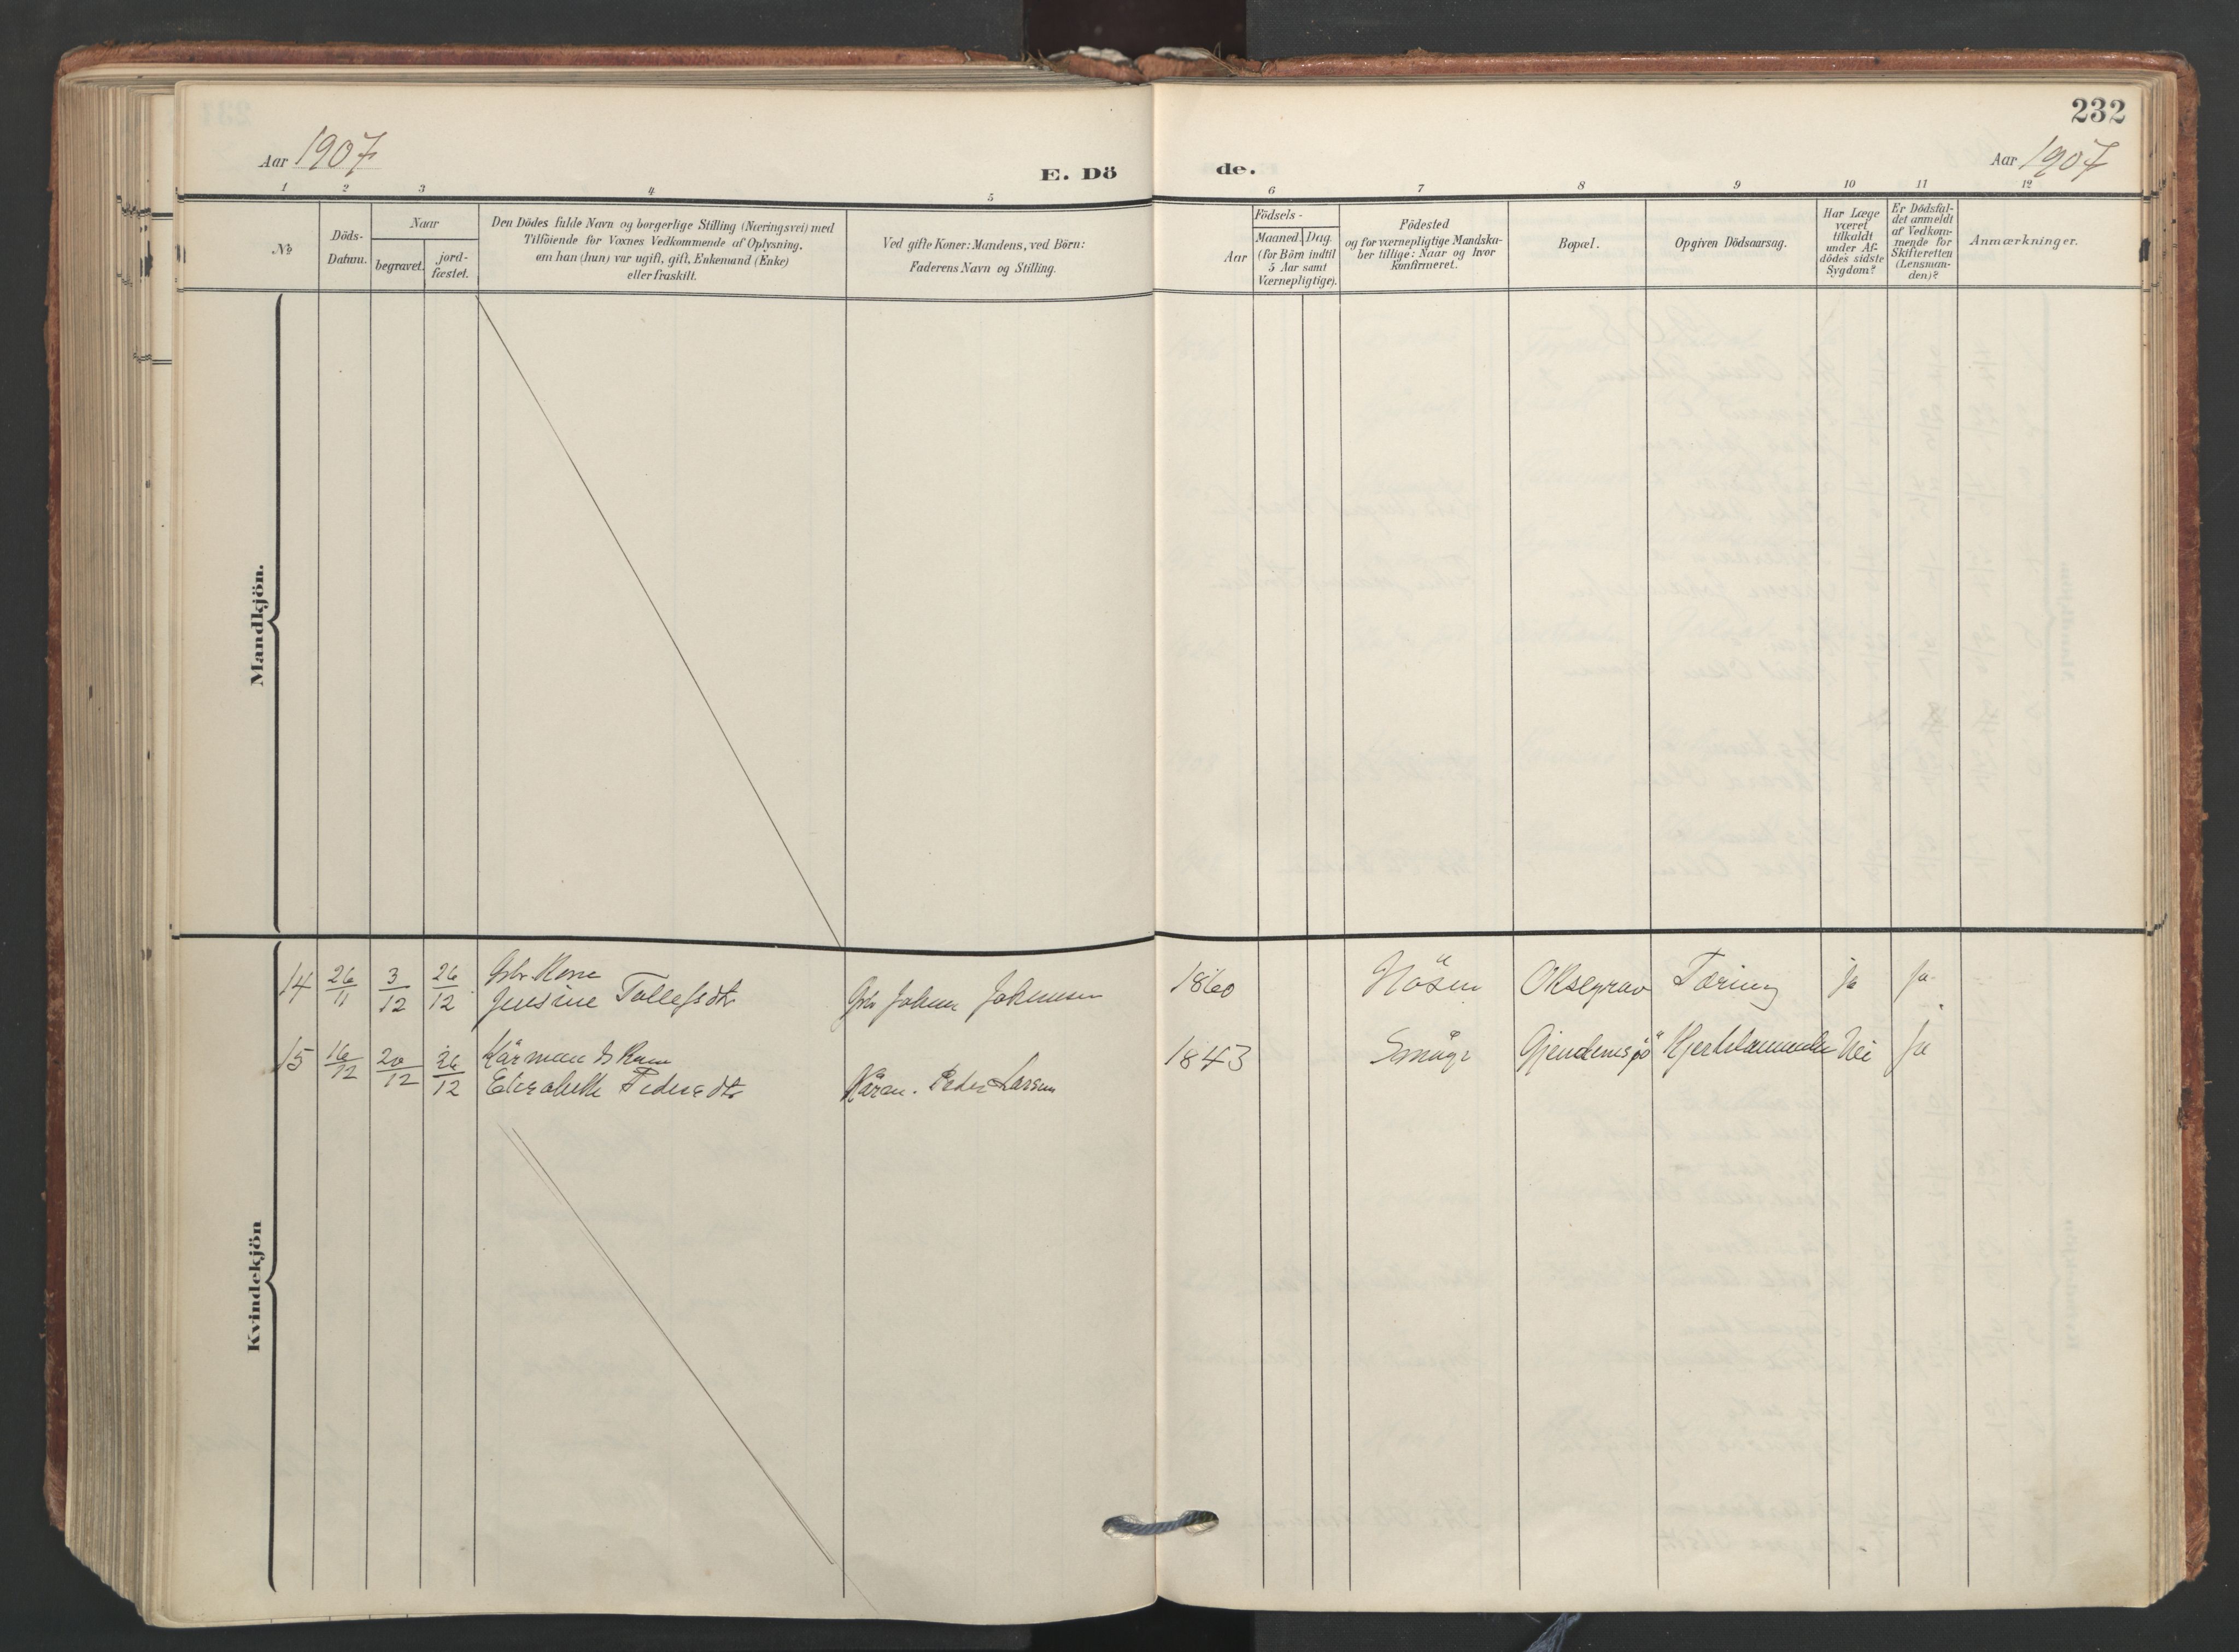 232
Aar 1907
E. Dö
de.
Aar 1907
1 2 3 4 5 6 7 8 9 10 11 12
No
Döds-
Datum.
Naar
begravet.
jord-
fæstet.
Den Dödes fulde Navn og borgerlige Stilling (Næringsvei) med
Tilföiende for Voxnes Vedkommende af Oplysning,
om han (hun) var ugift, gift, Enkemand (Enke)
eller fraskilt.
Ved gifte Koner: Mandens, ved Börn:
Faderens Navn og Stilling.
Födsels-
Aar
Maaned. Dag.
(for Börn indtil
5 Aar samt
Værnepligtige).
Födested
og for værnepligtige Mandska-
ber tillige: Naar og hvor
konfirmeret.
Bopæl.
Opgiven Dödsaarsag.
Har Læge
været
tilkaldt
under Af-
dödes sidste
Sygdom?
Er Dödsfal-
det anmeldt
af Vedkom-
mende for
Skifteretten
(Lensman-
den)?
Anmærkninger.
Mandkjön.
Kvindekjön
14 26/11 3/12 26/12 Gbr. Kone
Jensine Tollefsdtr Gbr Johan Johansen 1860 Oksegrav Tæring ja ja
15 16/12 20/12 26/12 Kårmand
Elisabeth Pedersdtr Kårm. Peder Larsen 1843 Smöge Gjendemsjö Nei ja